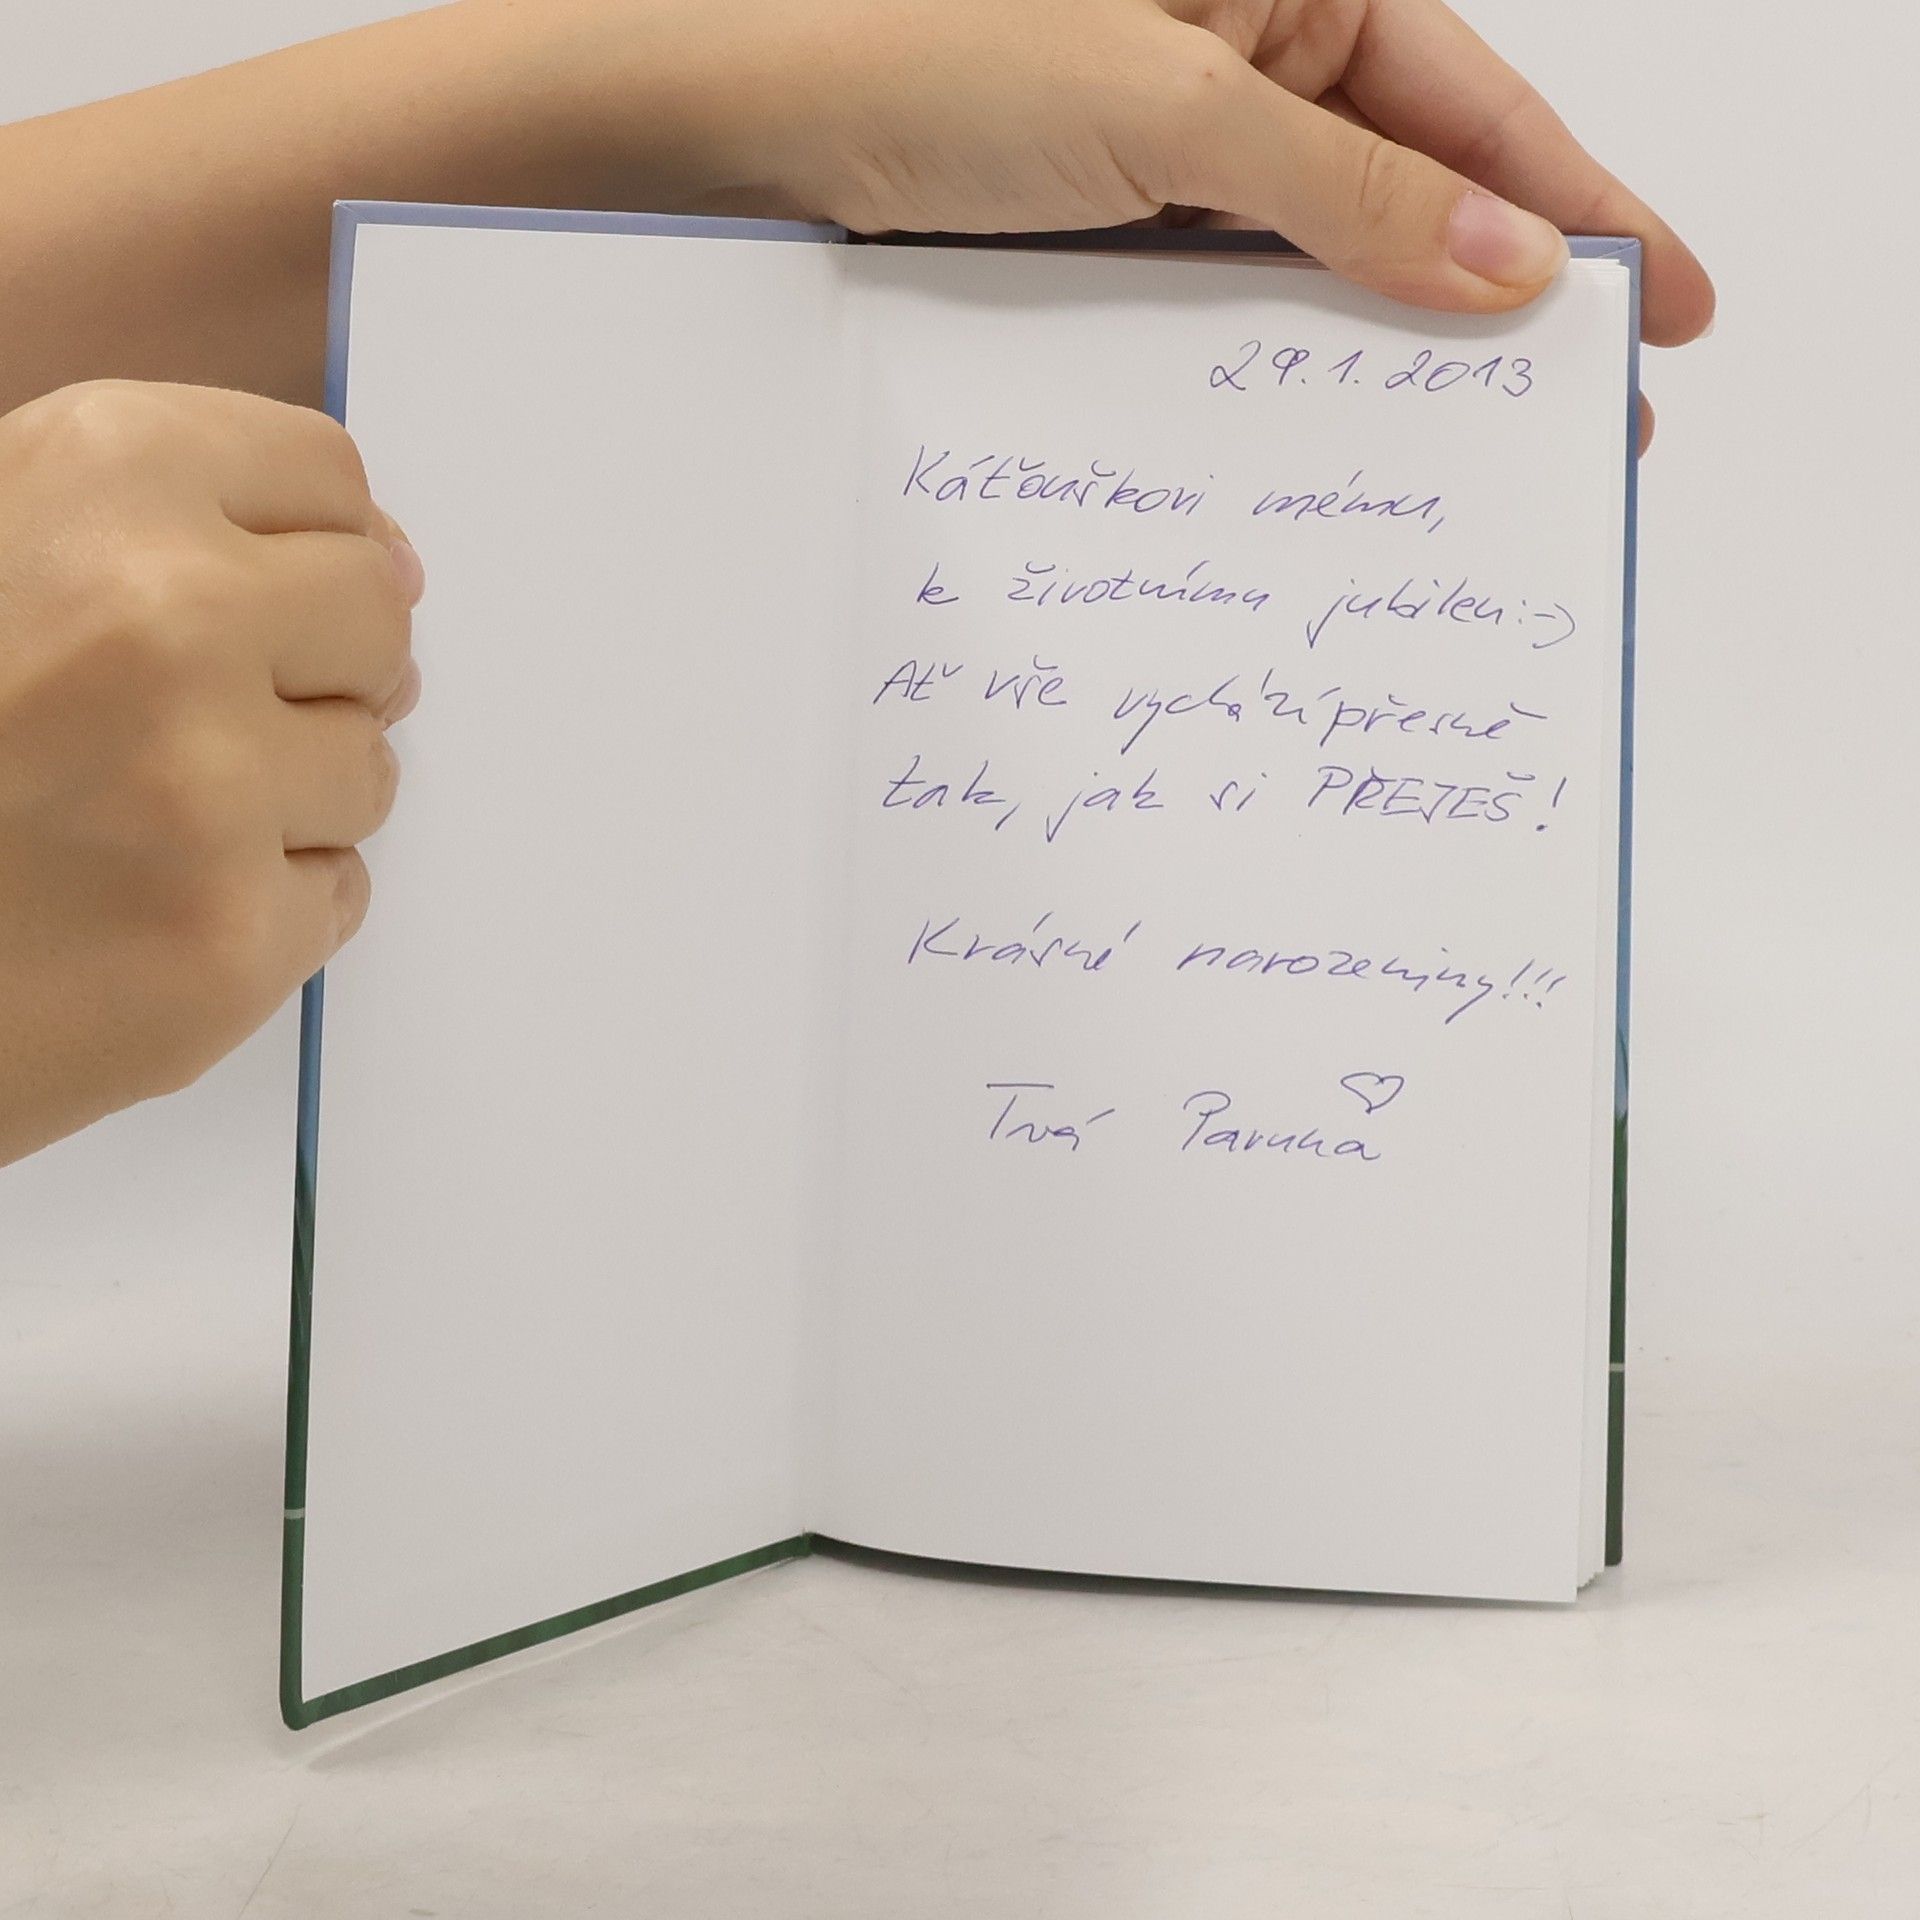 29.1.2013
Káťouškovi mému,
k životnímu jubileu :-)
Ať vše vychází přesně
tak, jak si PŘEJEŠ!
Krásné narozeniny!!!
Tvá